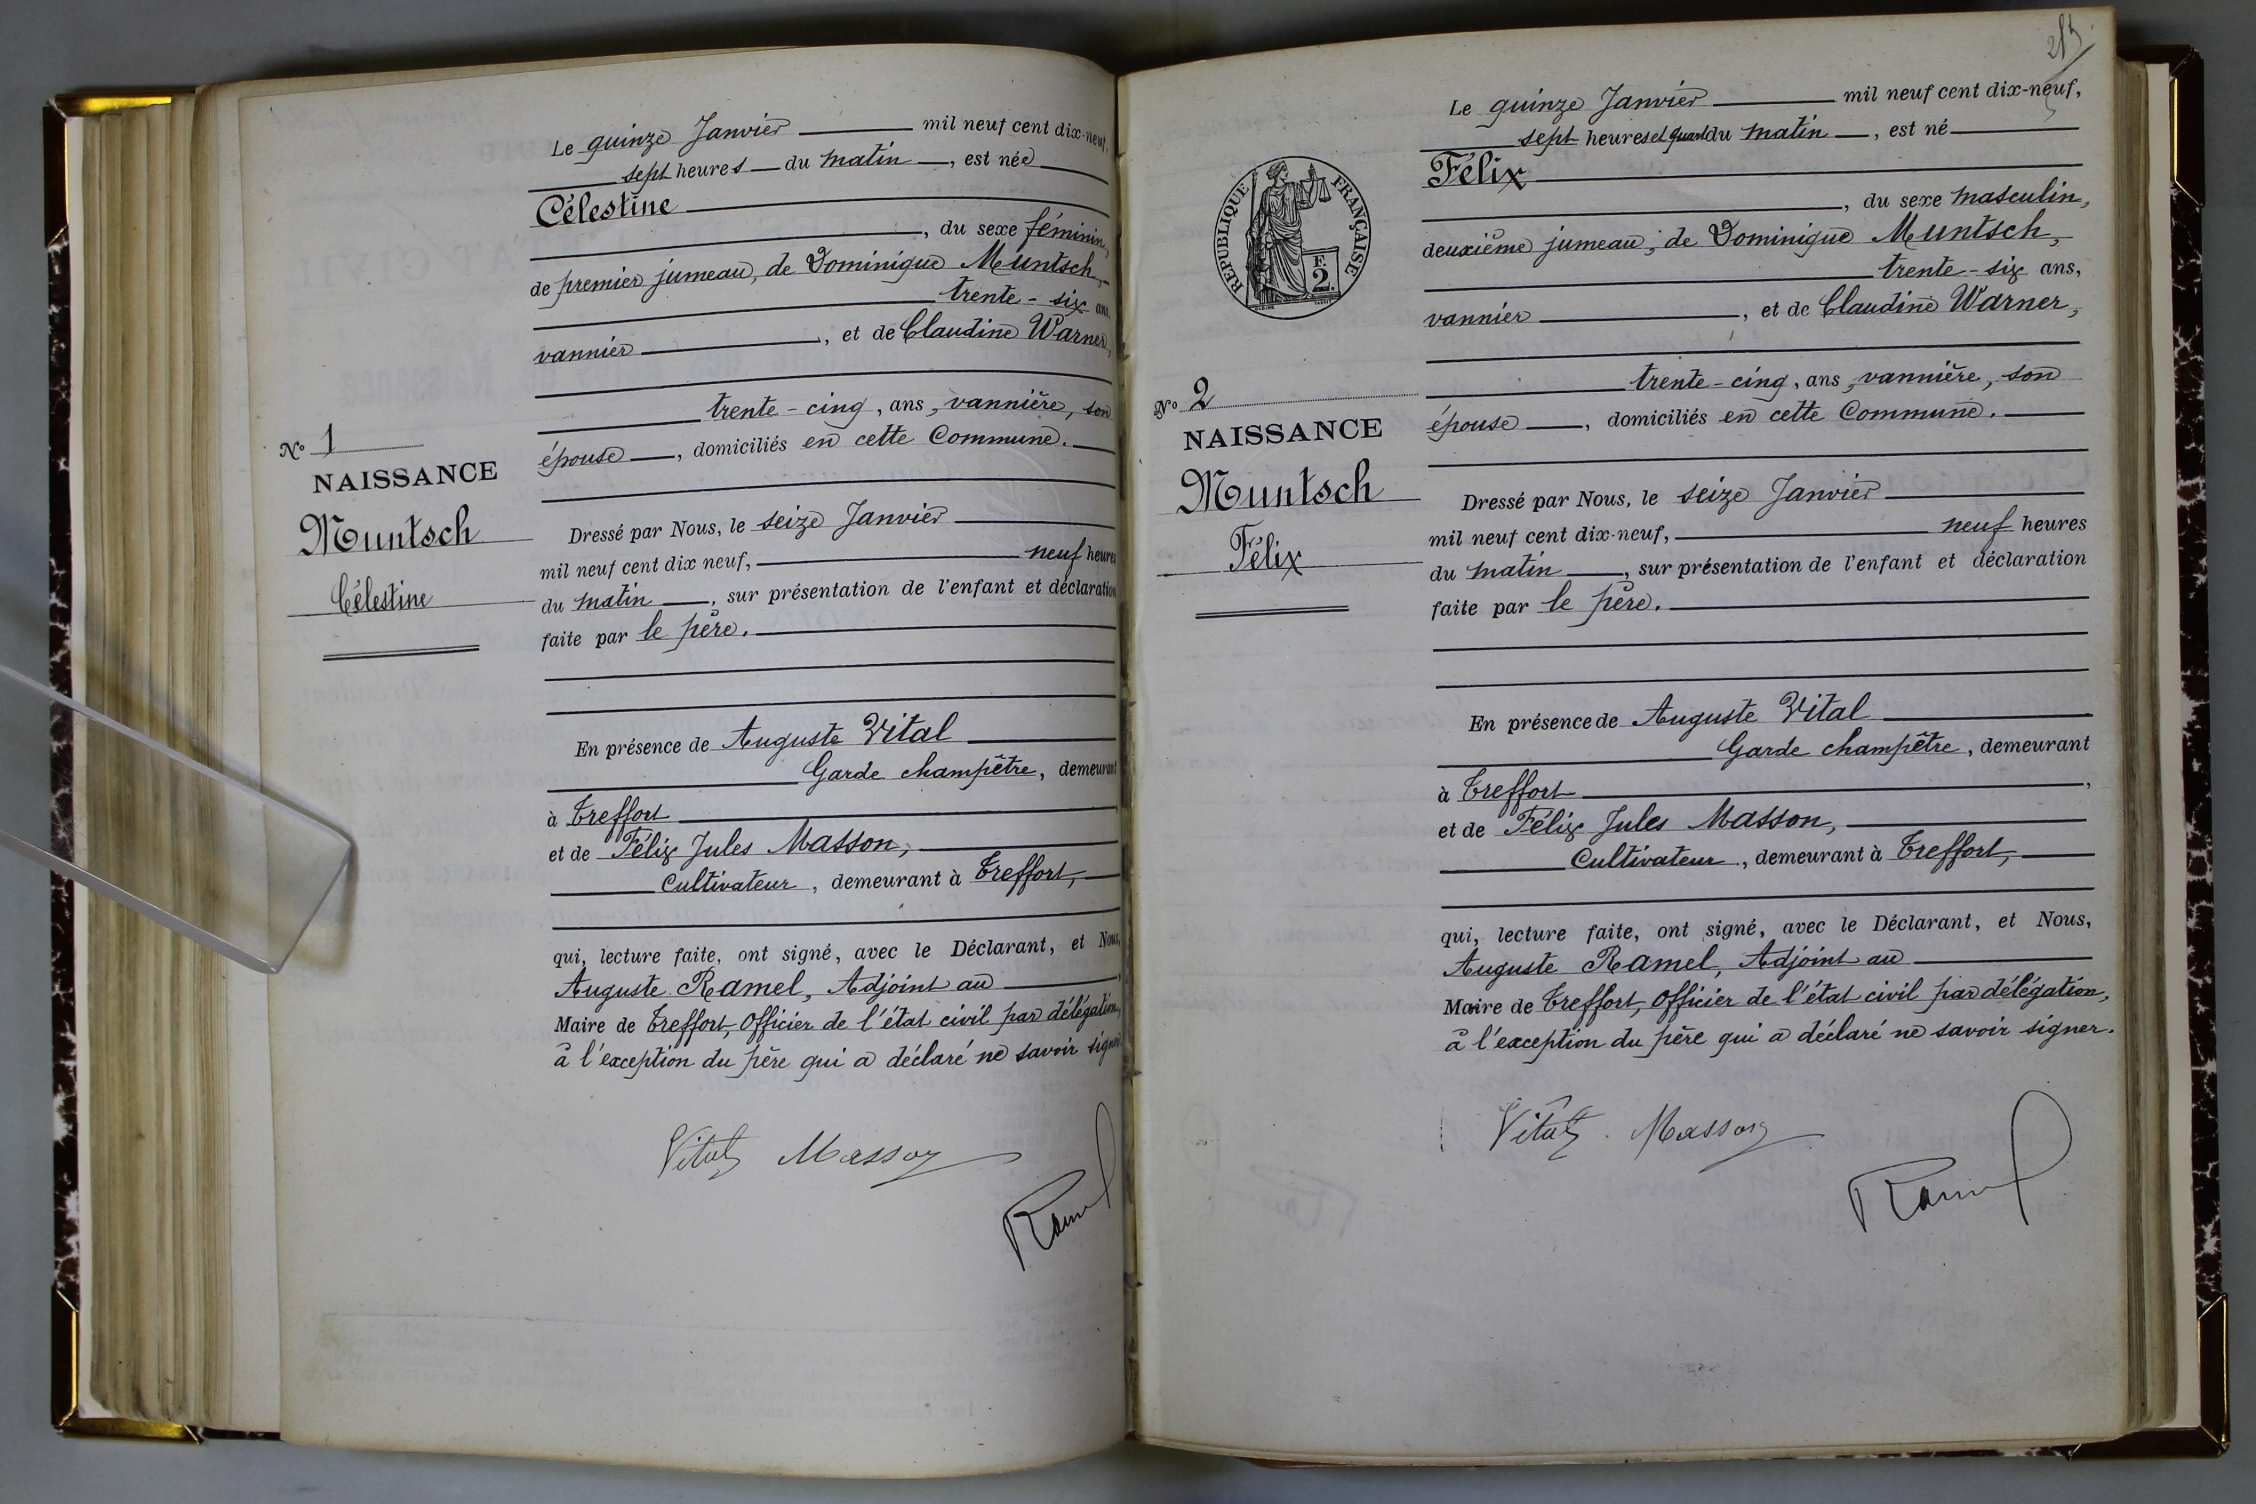 Le quinze Janvier mil neuf cent dix-neuf,
sept heures du matin, est née
Célestine
, du sexe féminin,
de premier jumeau, de Dominique Muntsch,
trente-six ans,
vannier, et de Claudine Warner,
trente-cinq, ans, vannière, son
épouse, domiciliés en cette Commune.
Nº 1
NAISSANCE
Muntsch
Célestine
Dressé par Nous, le seize Janvier
mil neuf cent dix neuf, neuf heures
du matin, sur présentation de l'enfant et déclaration
faite par le père.
En présence de Auguste Vital
Garde champêtre, demeurant
à Treffort
et de Félix Jules Masson,
Cultivateur, demeurant à Treffort,
qui, lecture faite, ont signé, avec le Déclarant, et Nous,
Auguste Ramel, Adjoint au
Maire de Treffort, Officier de l'état civil par délégation,
à l'exception du père qui a déclaré ne savoir signer
Vital Masson
Ramel
Le quinze Janvier mil neuf cent dix-neuf,
sept heures et quart du matin, est né
Félix
, du sexe masculin,
deuxième jumeau, de Dominique Muntsch,
trente-six ans,
vannier, et de Claudine Warner,
trente-cinq, ans, vannière, son
épouse, domiciliés en cette Commune.
REPUBLIQUE FRANÇAISE
F.
2.
Nº 2
NAISSANCE
Muntsch
Félix
Dressé par Nous, le seize Janvier
mil neuf cent dix-neuf, neuf heures
du matin, sur présentation de l'enfant et déclaration
faite par le père.
En présence de Auguste Vital
Garde champêtre, demeurant
à Treffort,
et de Félix Jules Masson,
Cultivateur, demeurant à Treffort,
qui, lecture faite, ont signé, avec le Déclarant, et Nous,
Auguste Ramel, Adjoint au
Maire de Treffort, Officier de l'état civil par délégation,
à l'exception du père qui a déclaré ne savoir signer.
Vital Masson
Ramel